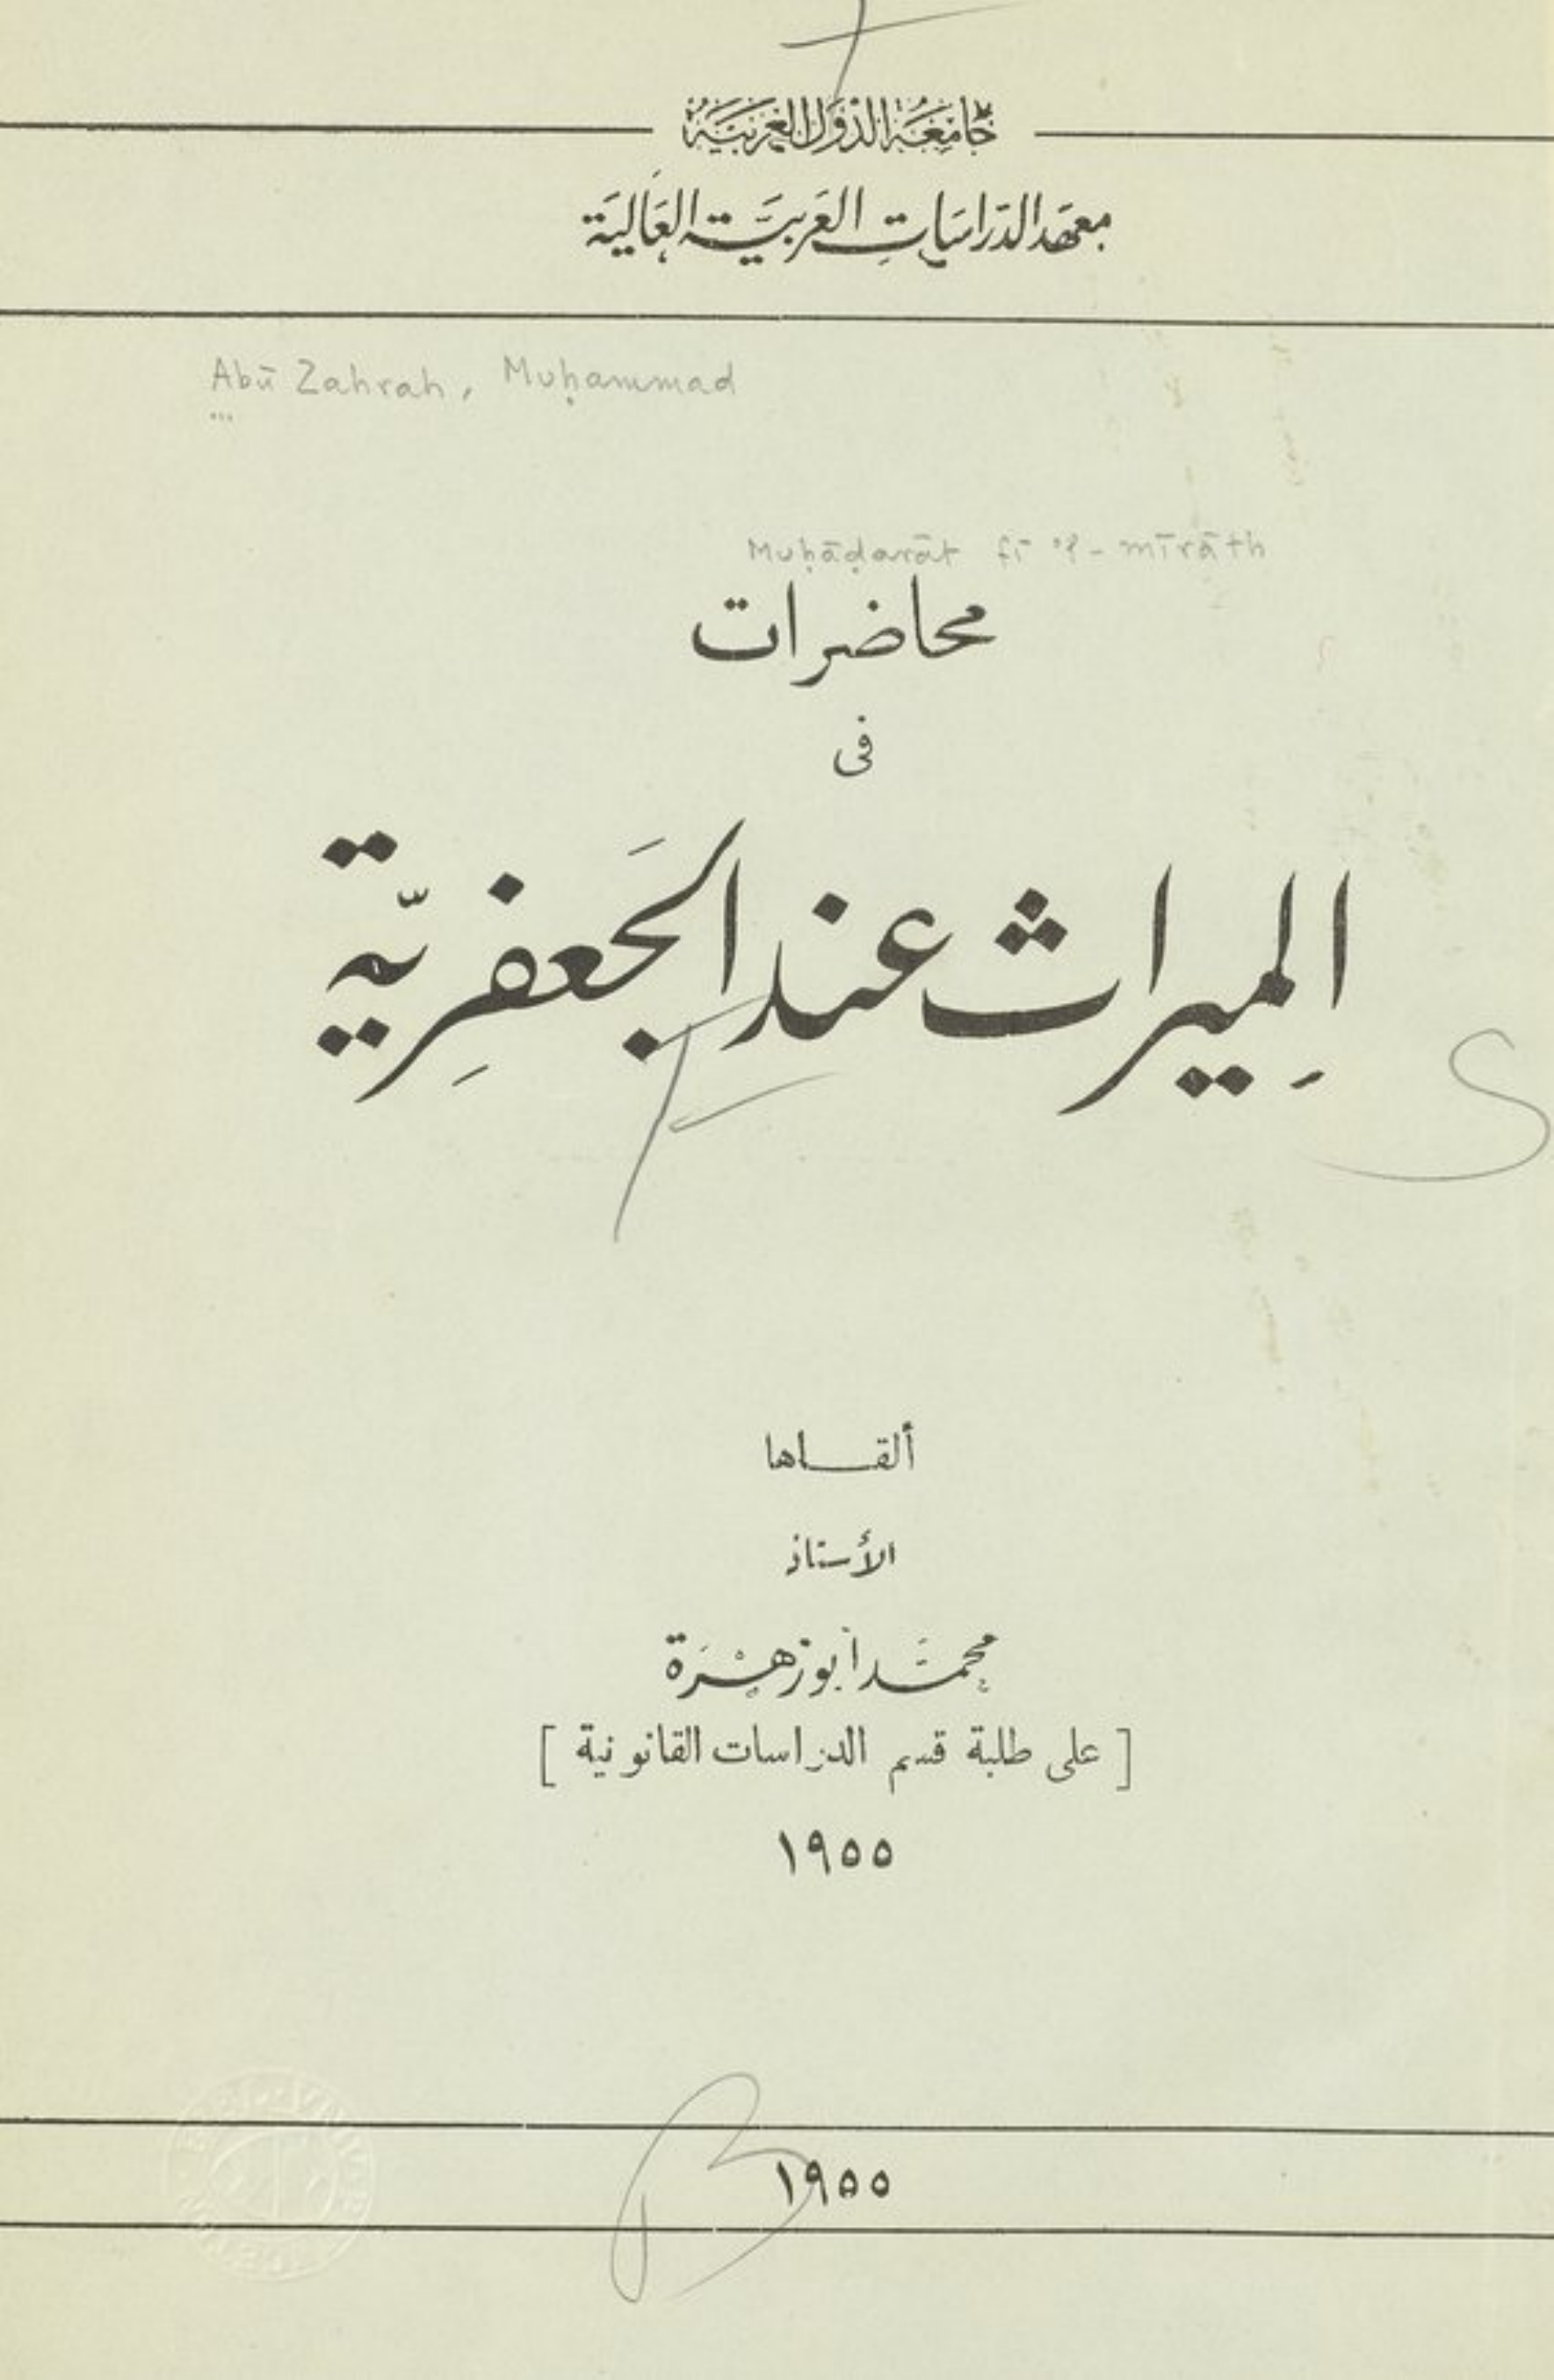 جامعة الدول العربية
معهد الدراسات العربية العالية
Abū Zahrah, Muḥammad
Muḥāḍarāt fī 'l-mīrāth
محاضرات
فى
المِيراث عند الجَعفِريّة
ألقـــاها
الأستاذ
محمد أبو زهرة
[ على طلبة قسم الدراسات القانونية ]
١٩٥٥
١٩٥٥